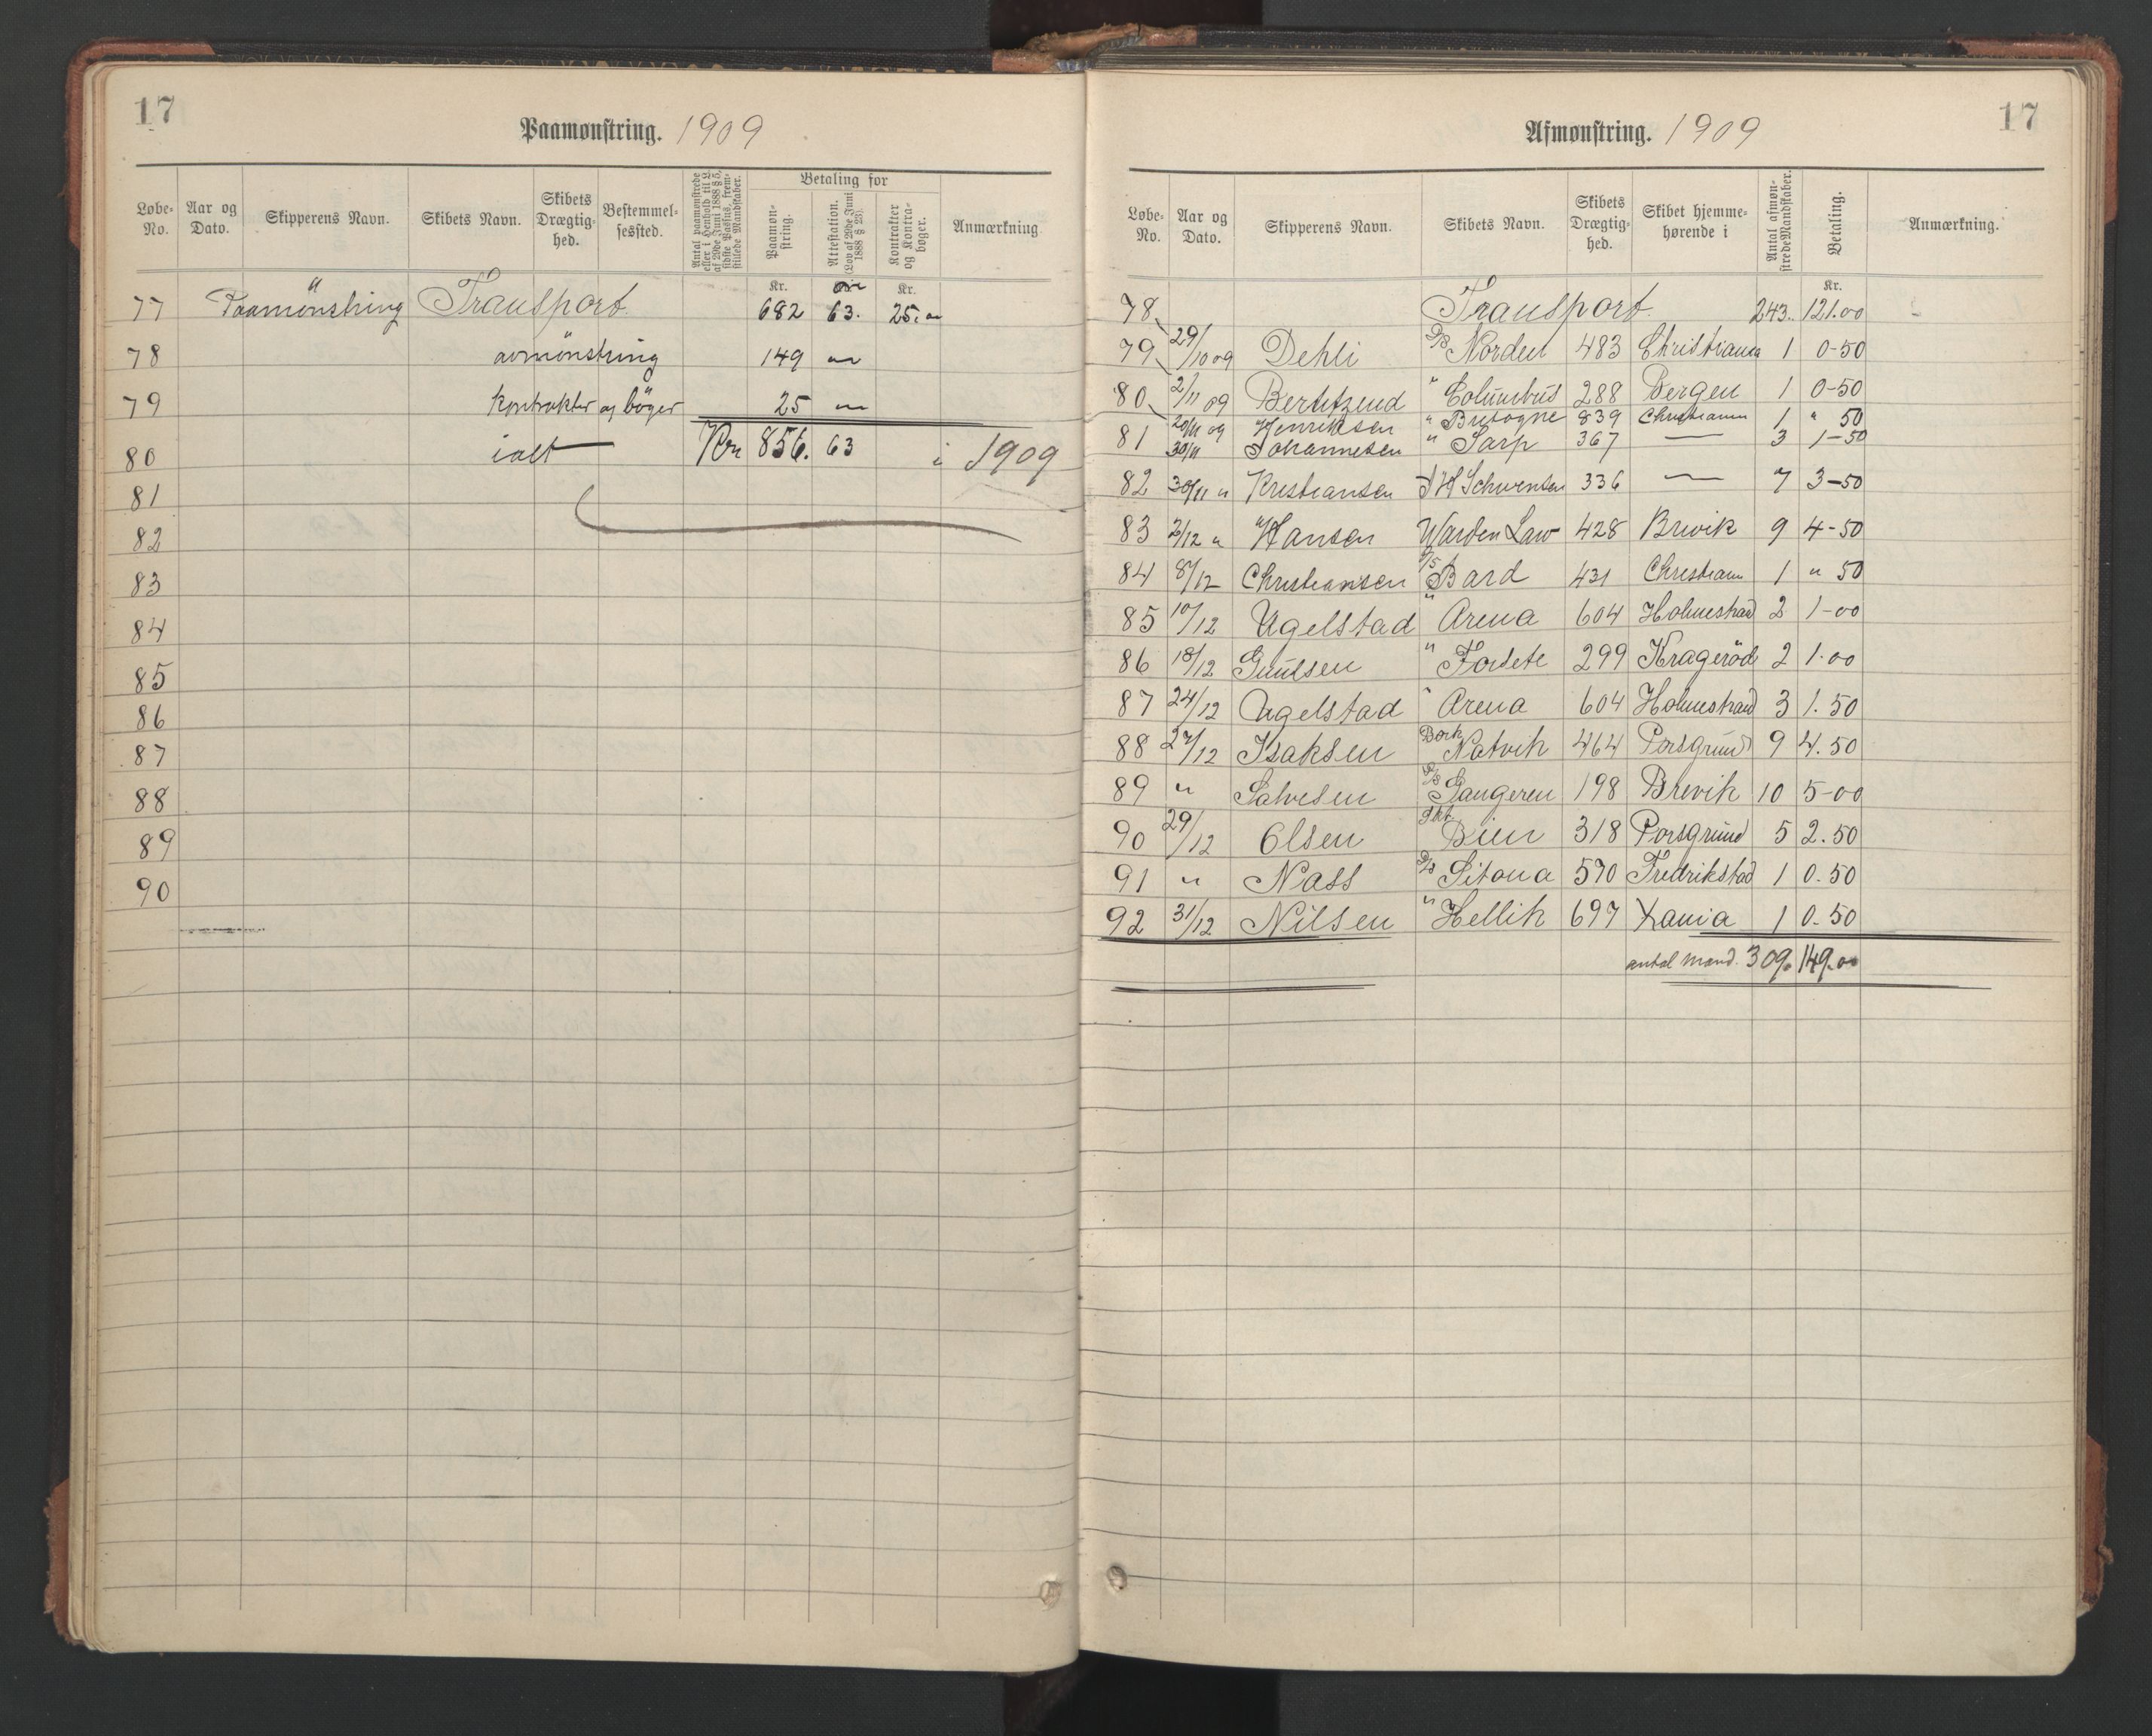 17
Paamønstring. 1909
Løbe-No. Aar og Dato. Skipperens Navn. Skibets Navn. Skibets Drægtighed. Bestemmelsessted. Antal paamønstrede eller i Henhold til L. af 29de Juni 1888 § 5, sidste Passus, fremstillede Mandskaber. Betaling for Paamønstring. Attestation. (Lov af 29de Juni 1888 § 23). Kontrakter og Kontrabøger. Anmærkning
Kr. Kr.
77 Paamönstring Transport 682 63. 25."
78 avmönstring 149 "
79 kontrakter og böger 25 "
80 ialt Kr 856. 63 i 1909
81
82
83
84
85
86
87
88
89
90
17
Afmønstring. 1909
Løbe-No. Aar og Dato. Skipperens Navn. Skibets Navn. Skibets Drægtighed. Skibet hjemmehørende i Antal afmønstrede Mandskaber. Betaling. Anmærkning.
Kr.
78 Transport 243. 121.00
79 29/10 09 Dehli D/S Norden 483 Christiania 1 0-50
80 2/11 09 Berntzend " Columbus 288 Bergen 1 0-50
20/11 09 Henriksen " Bretagne 839 Christiania 1 " 50
81 30/11 Johannesen " Sarp 367 — 3 1-50
82 30/11 " Kristiansen J H Schwensen 336 — 7 3-50
83 2/12 " Hansen Warden Law 428 Brevik 9 4-50
84 8/12 Christiansen D/S Bard 431 Christiania 1 " 50
85 10/12 Ugelstad " Arena 604 Holmestrand 2 1-00
86 18/12 Guulsen " Forsete 299 Kragerö 2 1.00
87 24/12 Ugelstad " Arena 604 Holmestrand 3 1.50
88 27/12 Isaksen Bark Natvik 464 Porsgrund 9 4.50
89 " Salvesen D/S Gangeren 198 Brevik 10 5-00
90 29/12 Olsen Skt. Bien 318 Porsgrund 5 2.50
91 " Nass D/S Sitona 570 Fredrikstad 1 0.50
92 31/12 Nilsen " Hellik 697 Xania 1 0.50
antal mand. 309. 149.00